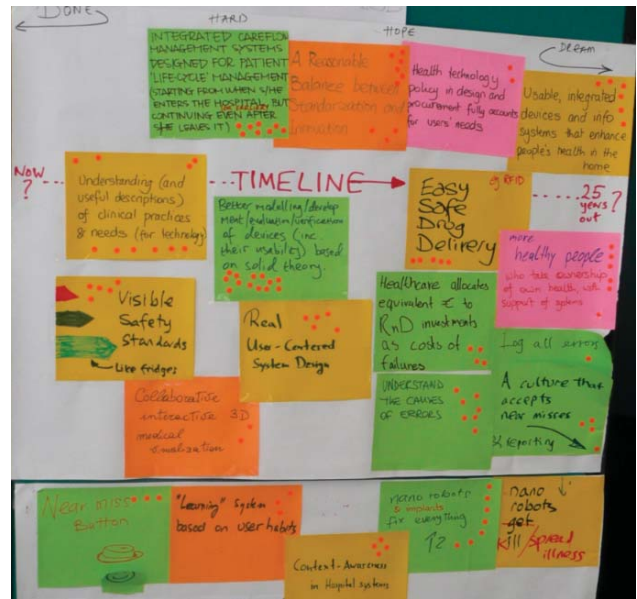 DONE
HARD
HOPE
DREAM
INTEGRATED CAREFLOW
MANAGEMENT SYSTEMS
DESIGNED FOR PATIENT
'LIFE-CYCLE' MANAGEMENT
(STARTING FROM WHEN S/HE
ENTERS THE HOSPITAL, BUT
CONTINUING EVEN AFTER
S/HE LEAVES IT)
A Reasonable
Balance between
Standarization and
Innovation
Health technology
policy in design and
procurement fully accounts
for users' needs
Usable, integrated
devices and info
systems that enhance
people's health in the
home
NOW
?
TIMELINE
25
years
out
?
Understanding (and
useful descriptions)
of clinical practices
& needs (for technology)
Better modelling/develop
ment/evaluation/verification
of devices (inc.
their usability) based
on solid theory.
eg RFID
Easy
Safe
Drug
Delivery
more
healthy people
who take ownership
of own health, with
support of systems
Visible
Safety
Standards
Like fridges
Real
User-Centered
System Design
Healthcare allocates
equivalent € to
RnD investments
as costs of
failures
Log all errors
A culture that
accepts
near misses
& reporting
Collaborative
interactive 3D
medical
visualization
UNDERSTAND
THE CAUSES
OF ERRORS
Near miss
Button
"Learning" System
based on user habits
Context-Awareness
in Hospital systems
nano robots
& implants
for everything
nano
robots
get
kill/spread
illness